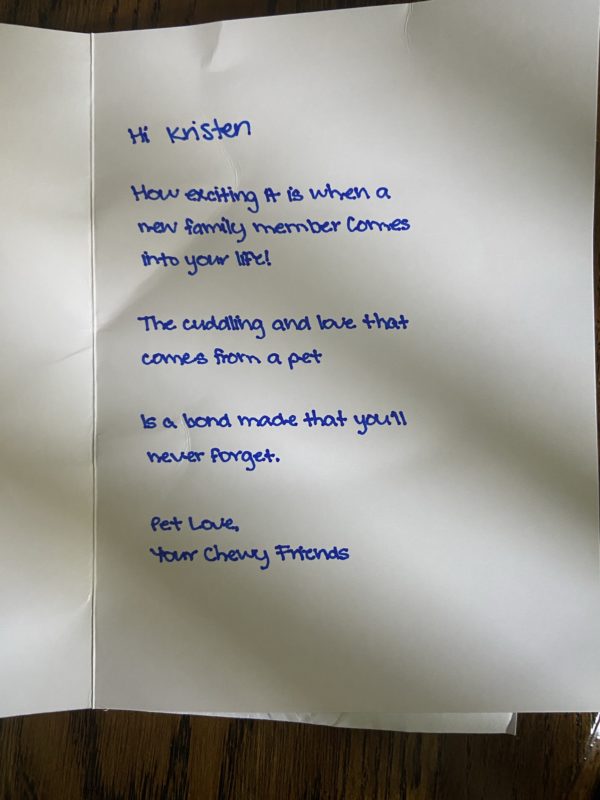 Hi Kristen
How exciting it is when a
new family member comes
into your life!
The cuddling and love that
comes from a pet
Is a bond made that you'll
never forget.
Pet Love,
Your Chewy Friends